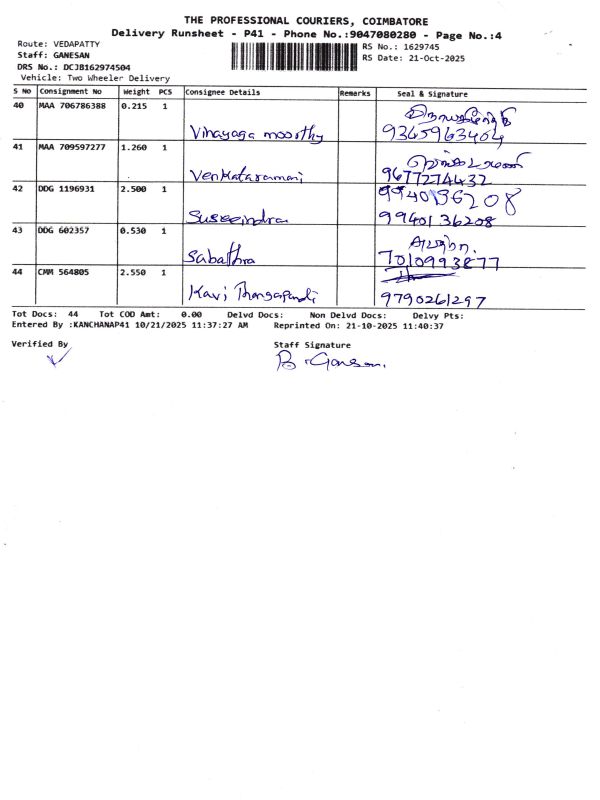 THE PROFESSIONAL COURIERS, COIMBATORE
Delivery Runsheet - P41 - Phone No.:9047080280 - Page No.:4
Route: VEDAPATTY
Staff: GANESAN
DRS No.: DCJB162974504
Vehicle: Two Wheeler Delivery
RS No.: 1629745
RS Date: 21-Oct-2025
S No Consignment No Weight PCS Consignee Details Remarks Seal & Signature
40 MAA 706786388 0.215 1
Vinayaga moorthy 9365963464
41 MAA 709597277 1.260 1
Venkataramani 9677274432
42 DDG 1196931 2.500 1 9940136208
Suseeindra 9940136208
43 DDG 602357 0.530 1
Sabathra 7010993877
44 CMM 564805 2.550 1
Kavi Thangapandi 9790261297
Tot Docs: 44 Tot COD Amt: 0.00 Delvd Docs: Non Delvd Docs: Delvy Pts:
Entered By :KANCHANAP41 10/21/2025 11:37:27 AM Reprinted On: 21-10-2025 11:40:37
Verified By Staff Signature